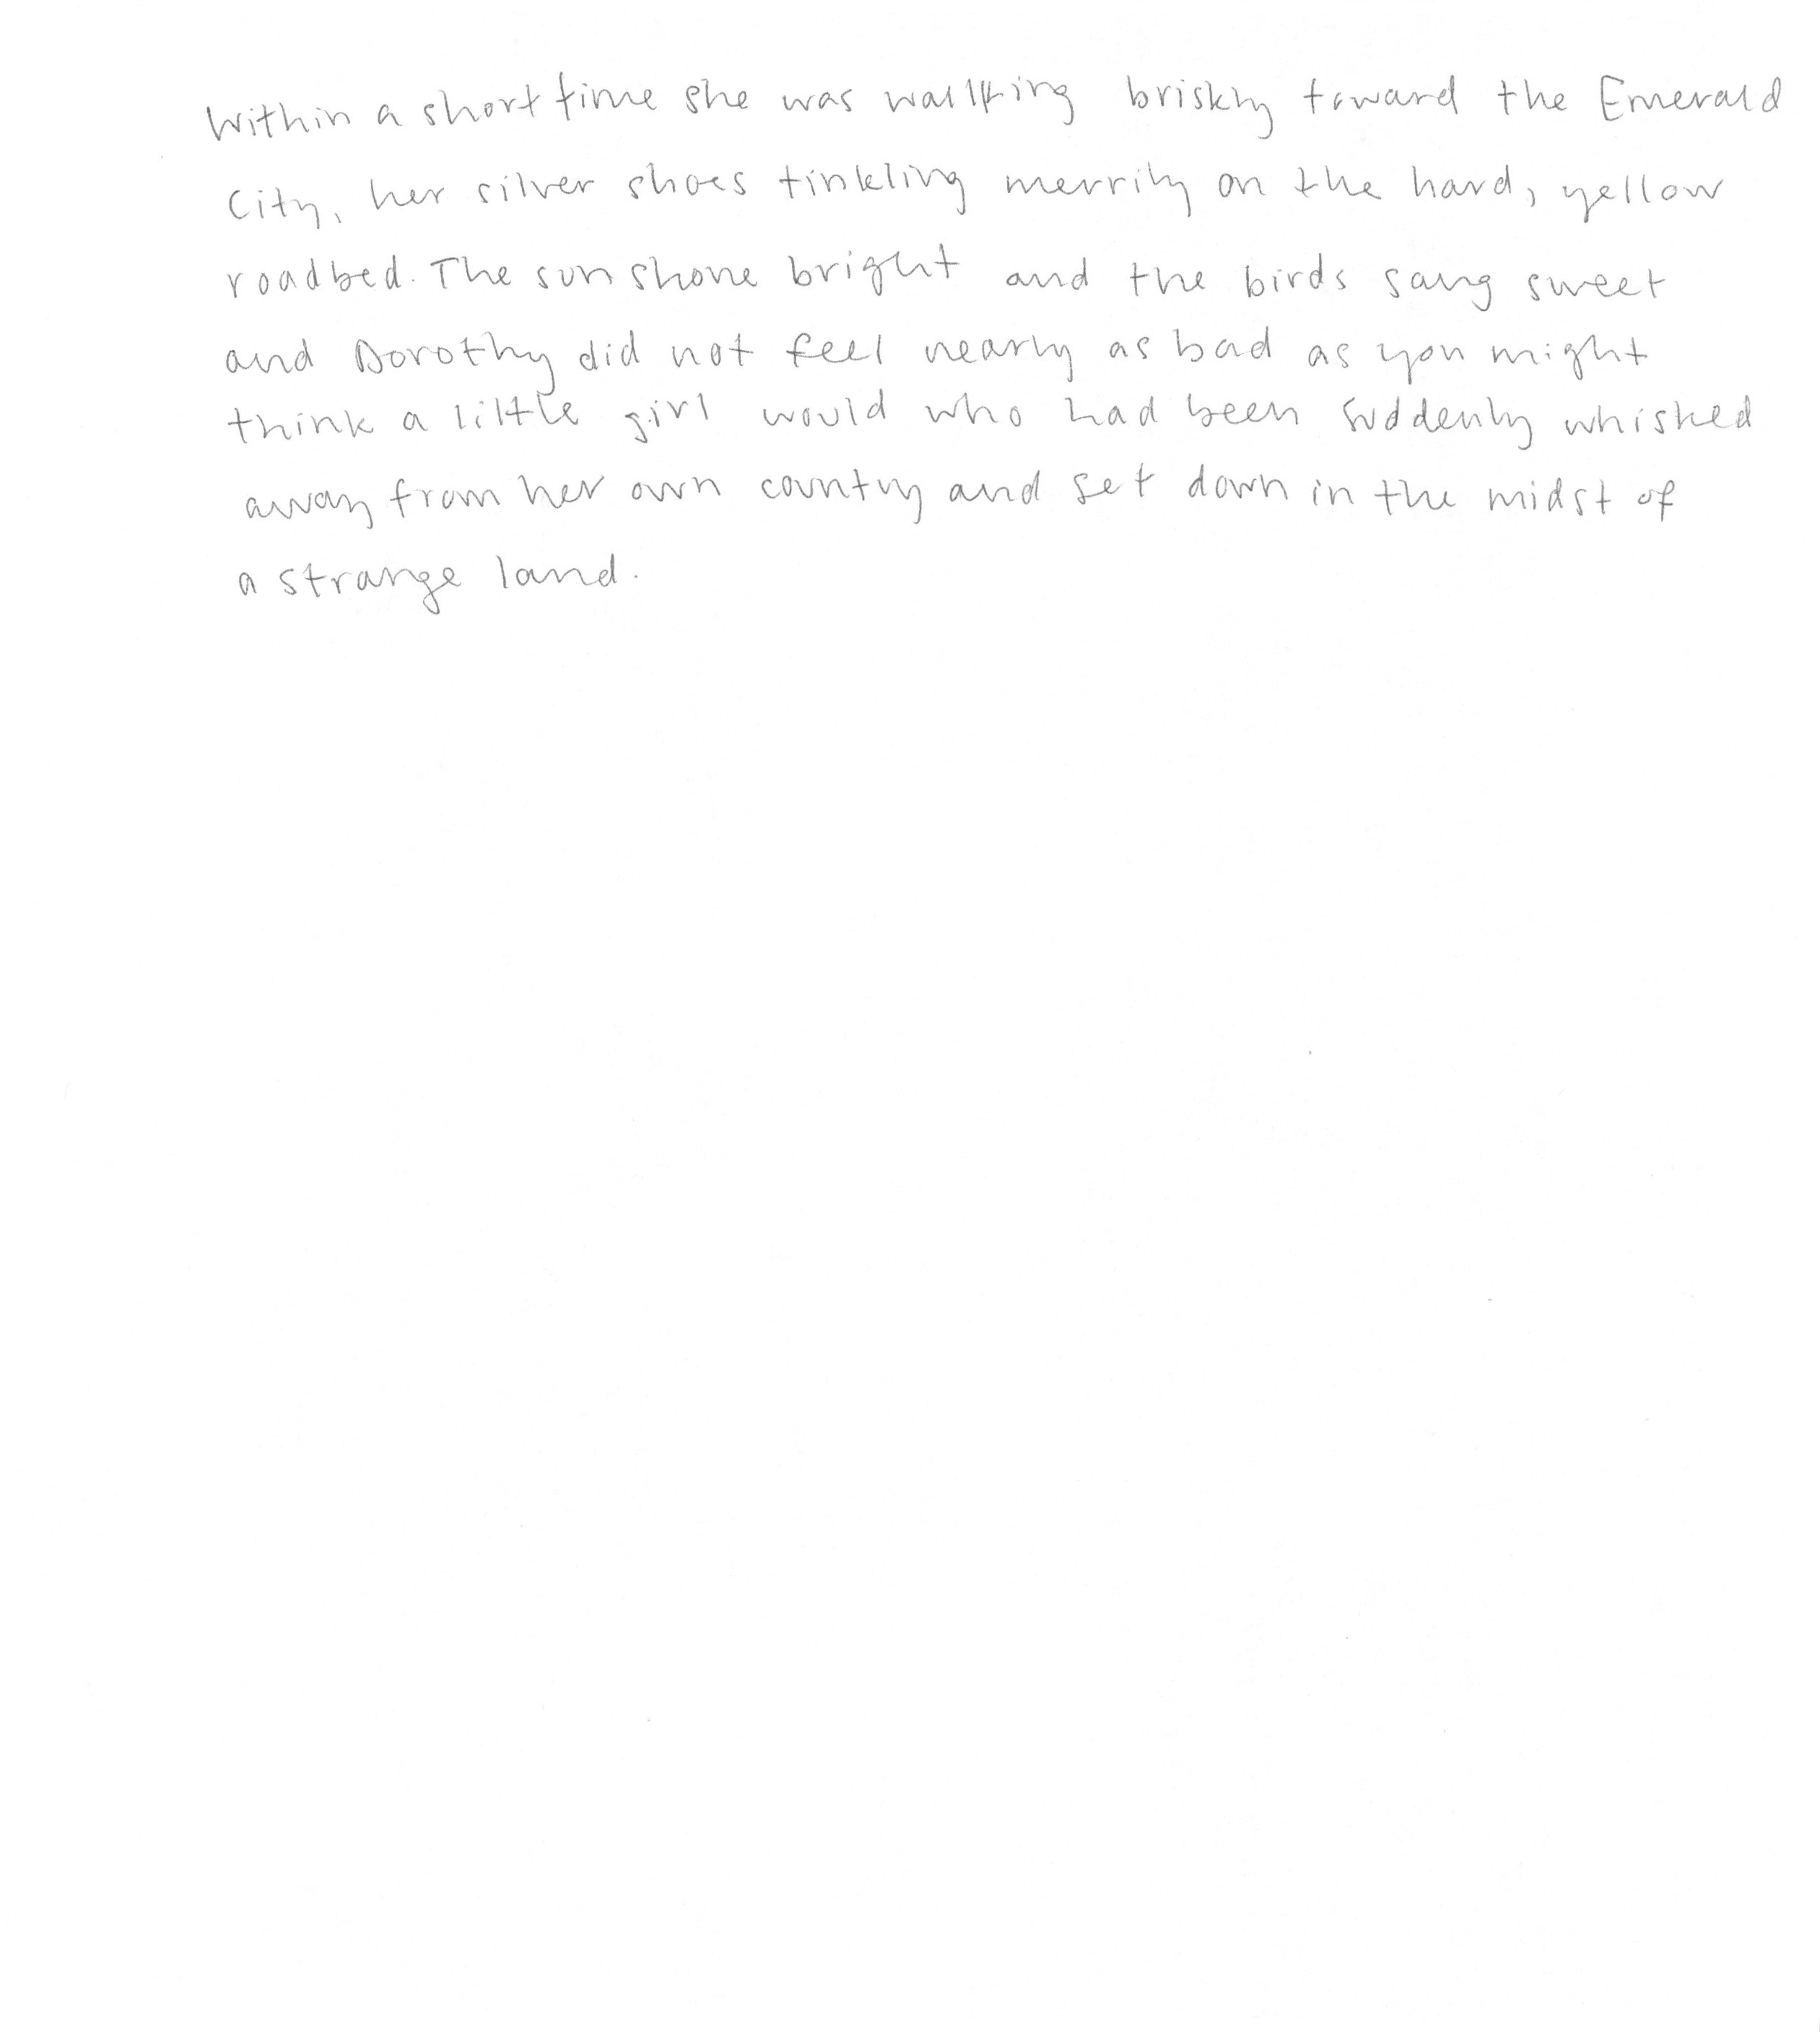 Within a short time she was walking briskly toward the Emerald
City, her silver shoes tinkling merrily on the hard, yellow
roadbed. The sun shone bright and the birds sang sweet
and Dorothy did not feel nearly as bad as you might
think a little girl would who had been suddenly whisked
away from her own country and set down in the midst of
a strange land.